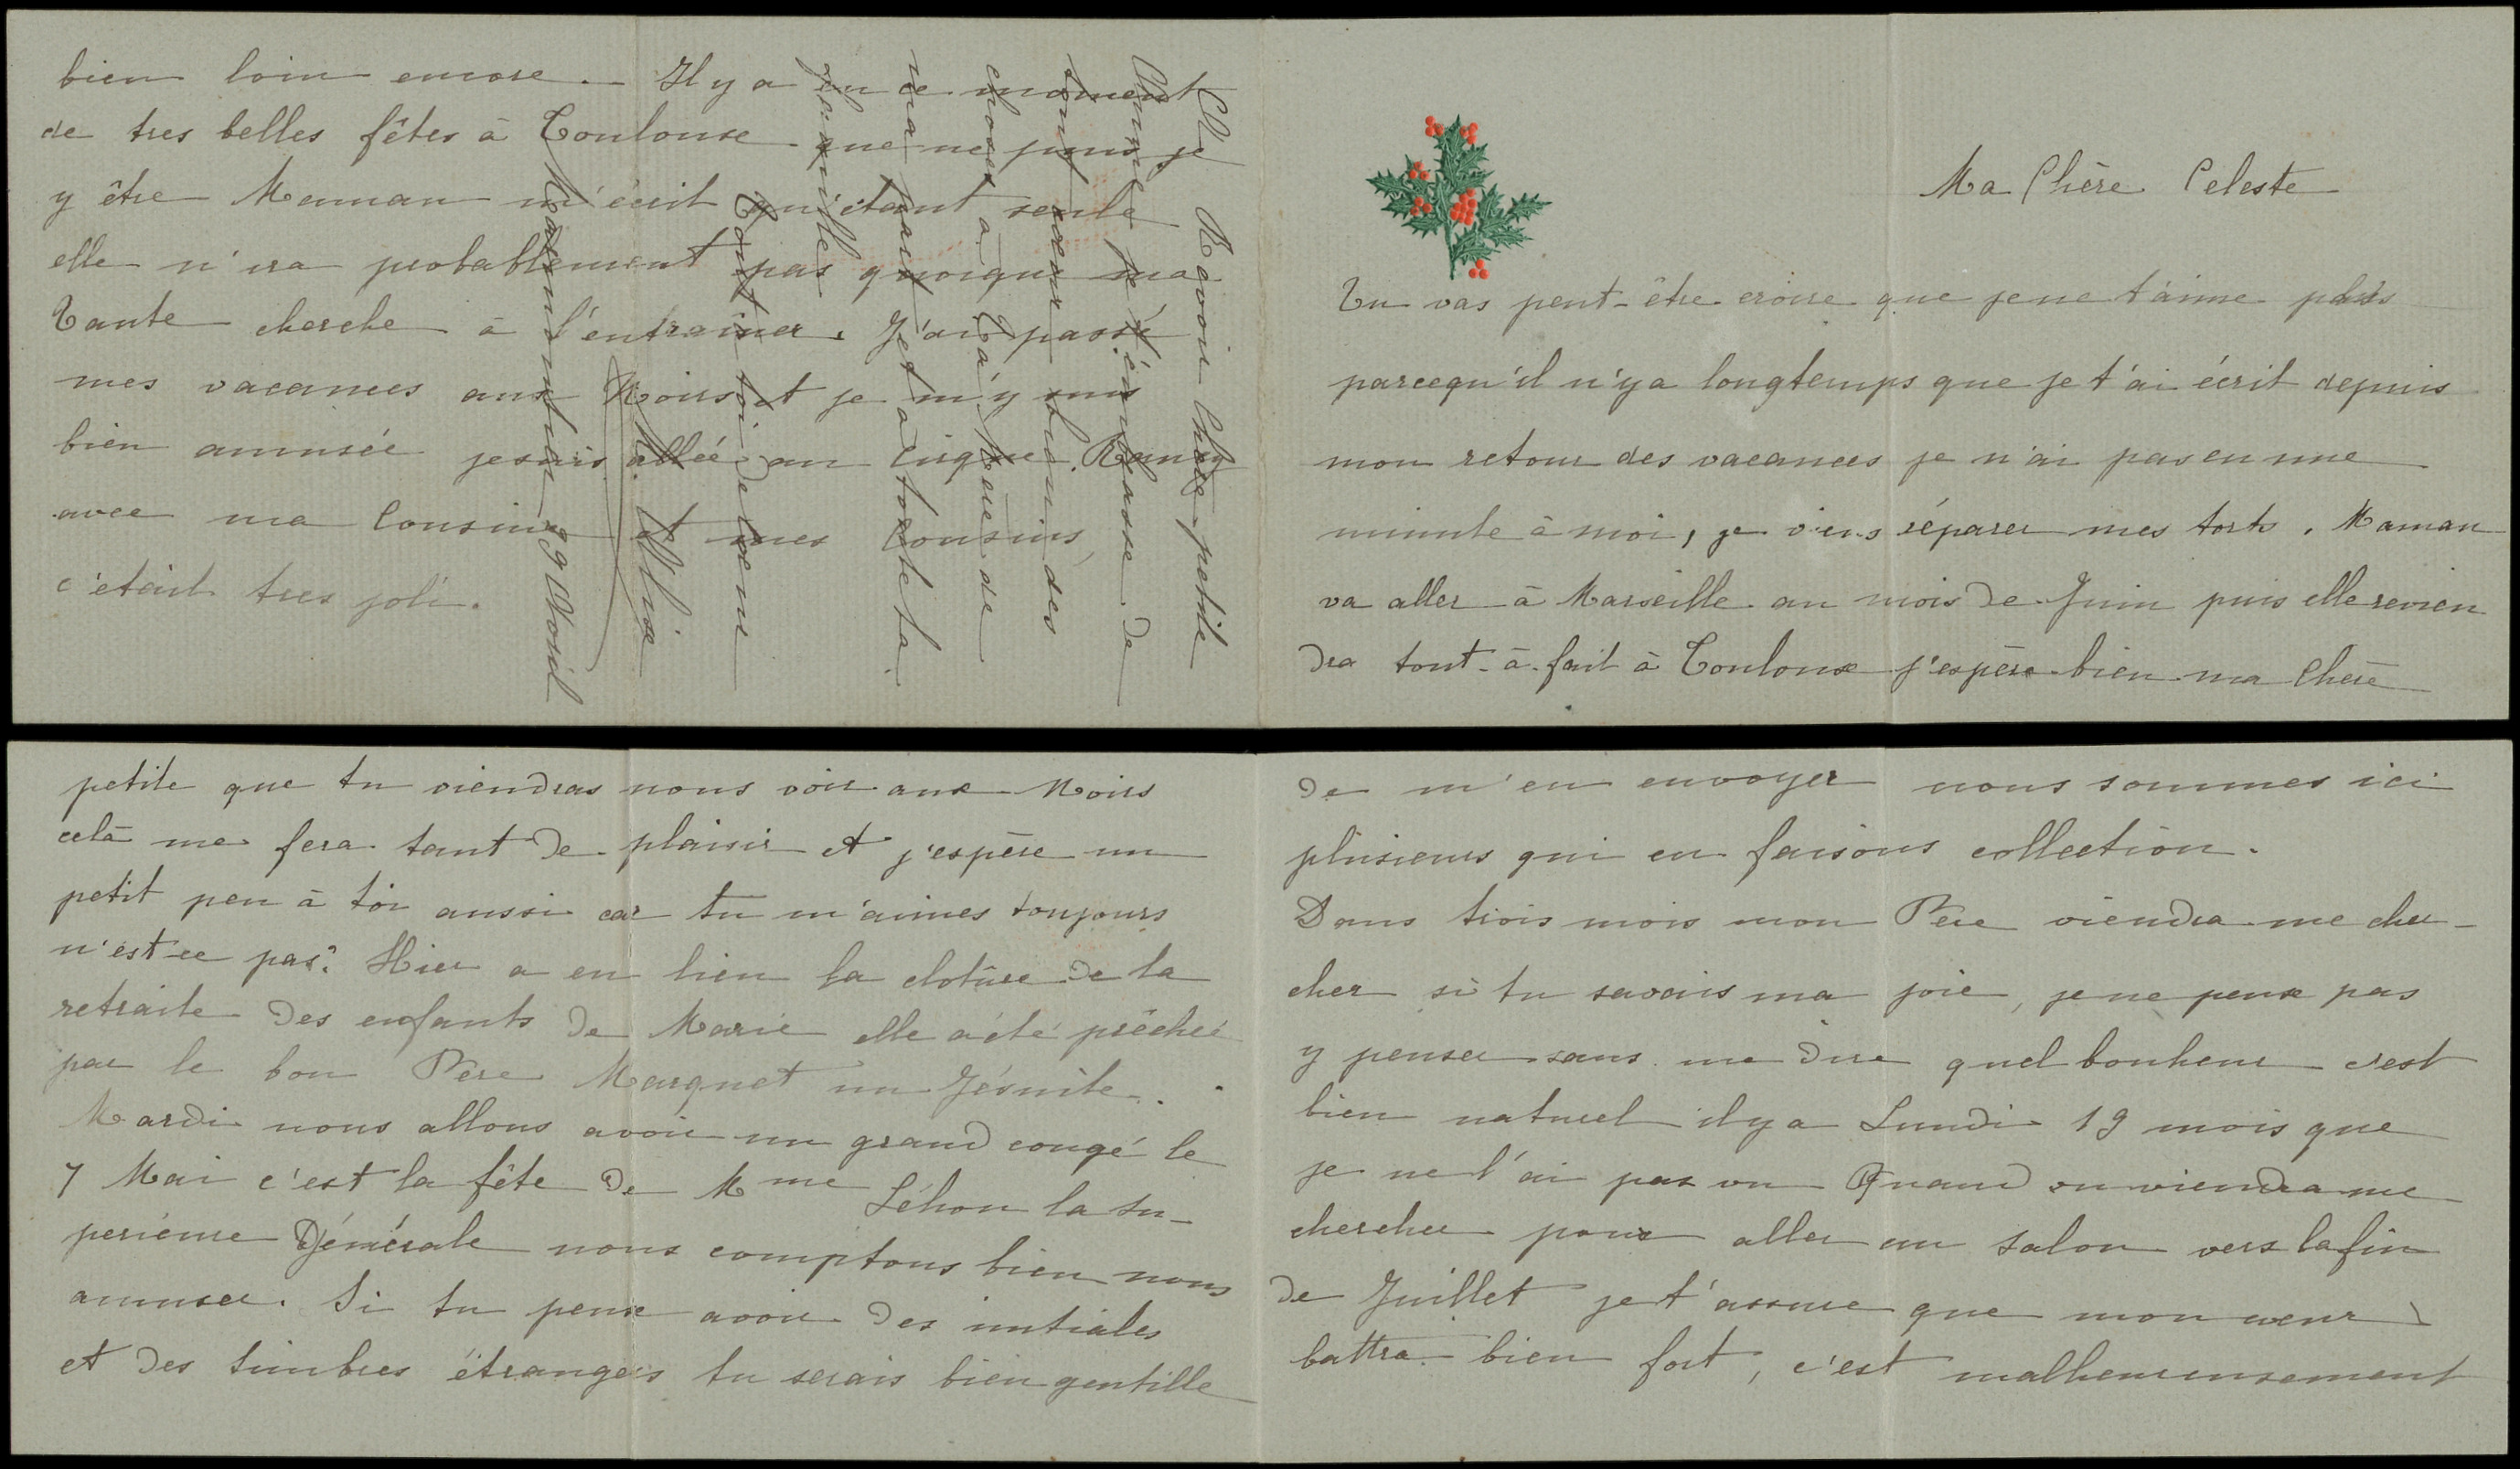 Ma Chère Celeste
Tu vas peut-être croire que je ne t'aime plus
parcequ'il n'y a longtemps que je t'ai écrit depuis
mon retour des vacances je n'ai pas eu une
minute à moi, je viens réparer mes torts. Maman
va aller à Marseille au mois de Juin puis elle revien
dra tout-à-fait à Toulouse j'espère bien ma Chère
petite que tu viendras nous voir aux Noirs
celà me fera tant de plaisir et j'espère un
petit peu à toi aussi car tu m'aimes toujours
n'est-ce pas? Hier a eu lieu la clotûre de la
retraite des enfants de Marie elle a été prêchée
par le bon Père Marquet un Jésuite.
Mardi nous allons avoir un grand congé le
7 Mai c'est la fête de Mme Léhon la su-
perieure Générale nous comptons bien nous
amuser. Si tu peux avoir des initiales
et des timbres étrangers tu serais bien gentille
de m'en envoyer nous sommes ici
plusieurs qui en faisons collection.
Dans trois mois mon Père viendra me cher-
cher si tu savais ma joie, je ne peux pas
y penser sans me dire quel bonheur c'est
bien naturel il y a Lundi 19 mois que
je ne l'ai pas vu Quand on viendra me
chercher pour aller au salon vers la fin
de Juillet je t'assure que mon coeur
battra bien fort, c'est malheureusement
bien loin encore. Il y a en ce moment
de tres belles fêtes à Toulouse que ne puis je
y être Maman m'écrit qu'étant seule
elle n'ira probablement pas quoique ma
Tante cherche à l'entrainer. J'ai passé
mes vacances aux Noirs et je m'y suis
bien amusée je suis allée au Cirque Rancy
avec ma Cousine et mes Cousins,
c'était tres joli.
Au Revoir Chère petite
Chérie je t'embrasse de
tout coeur des
choses à Ta Mère de
ma part et à toute ta
famille
Tout à toi de coeur
M. Alix